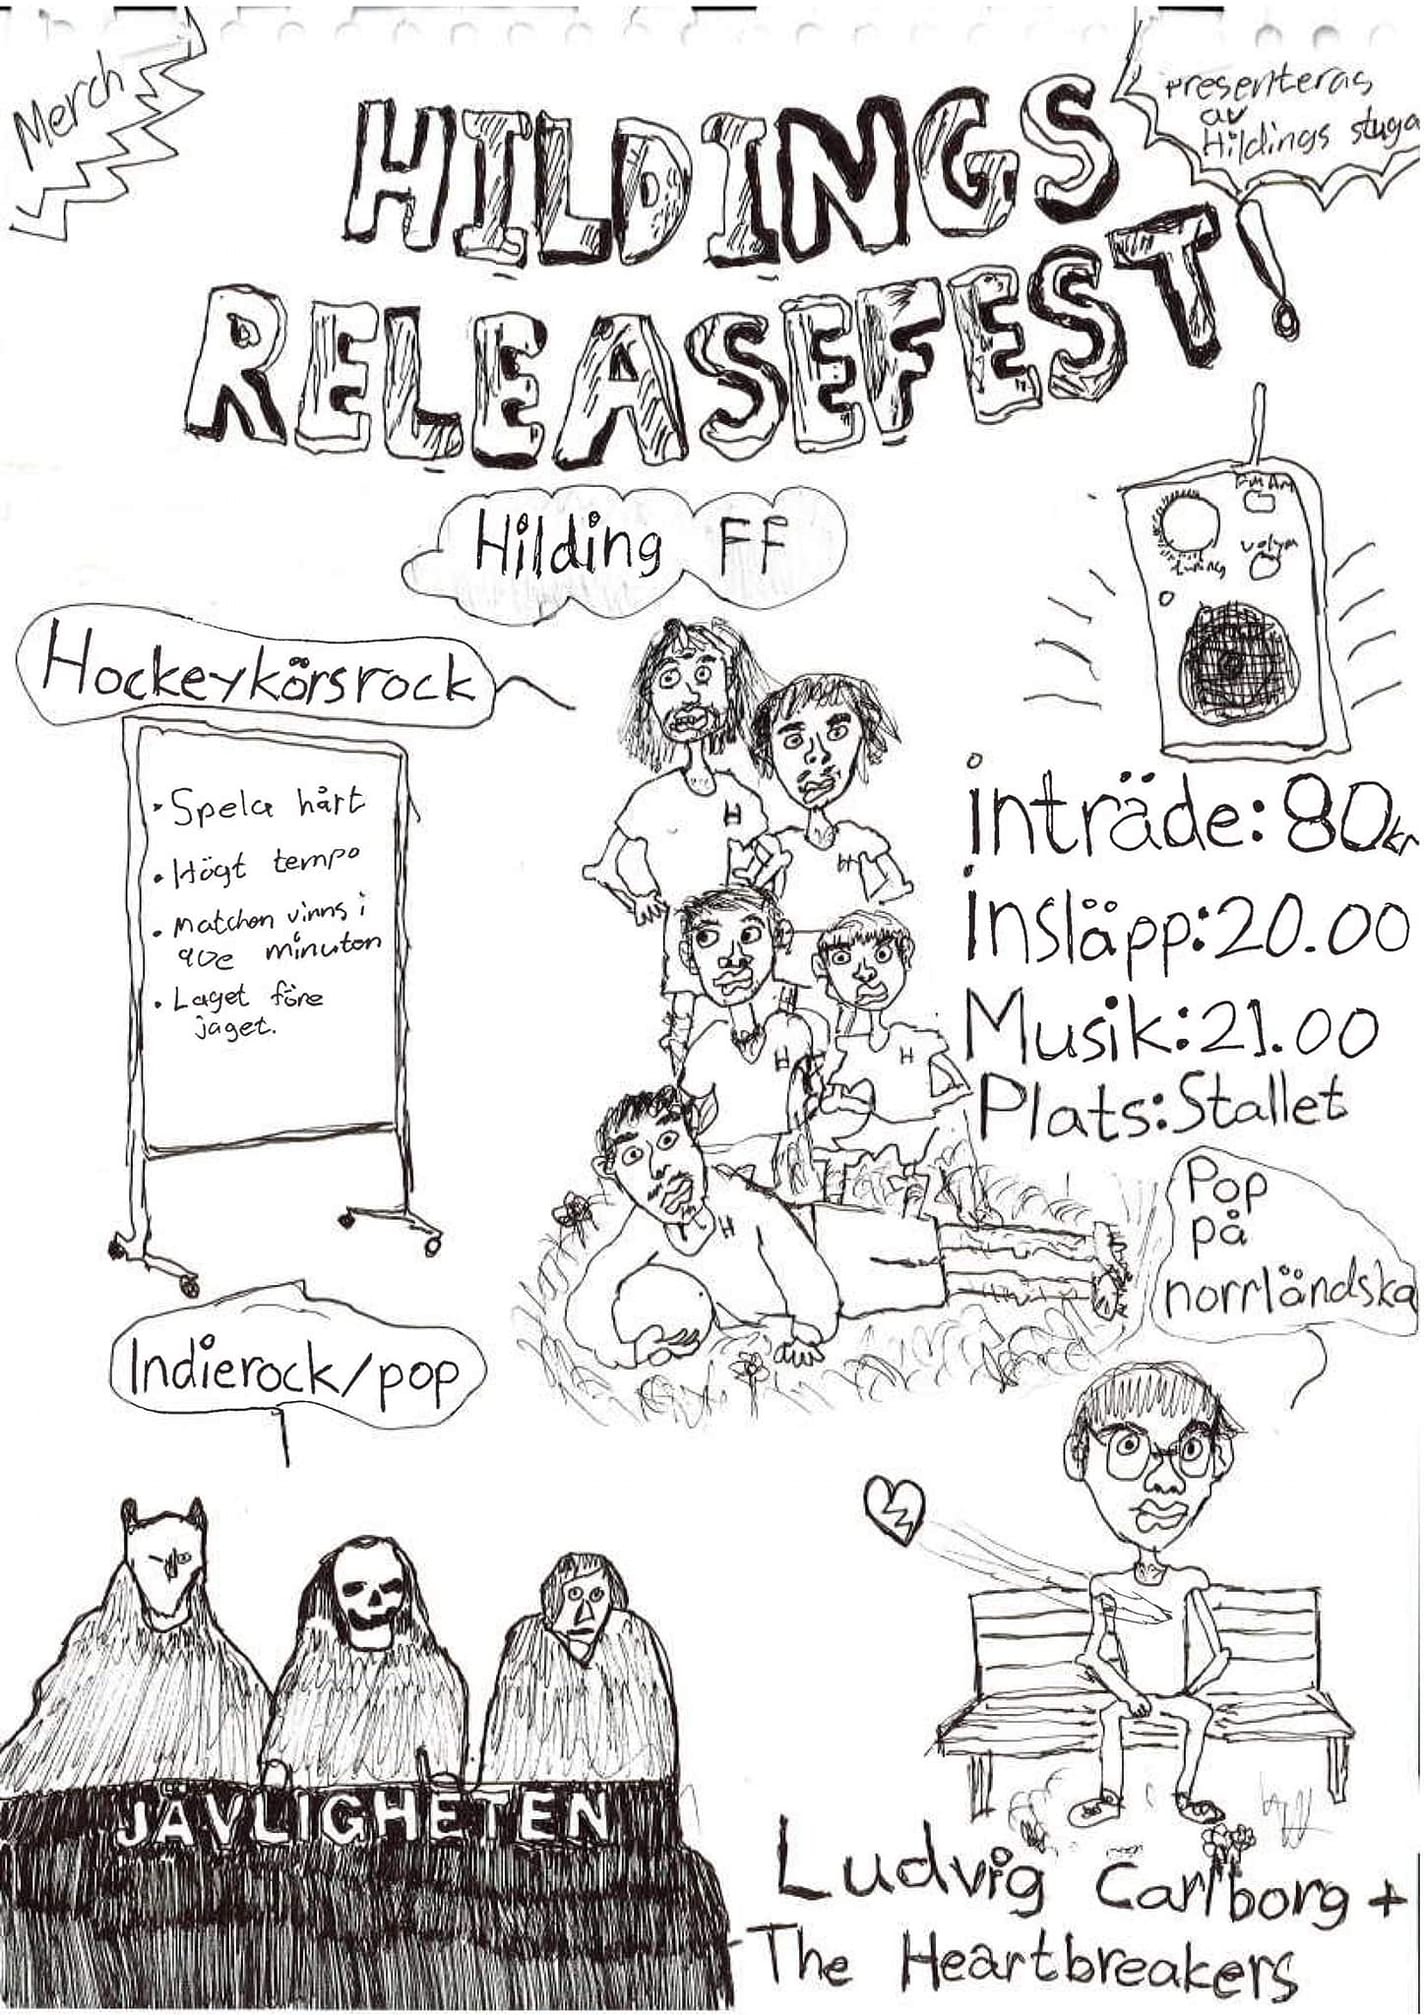 Merch
presenteras
av
Hildings stuga
HILDINGS
RELEASEFEST!
Hilding FF
FM AM
volym
tuning
Hockeykörsrock
• Spela hårt
• Högt tempo
• Matchen vinns i
90e minuten
• Laget före
jaget.
H
H
H
H
H
inträde: 80kr
Insläpp: 20.00
Musik: 21.00
Plats: Stallet
Pop
på
norrländska
Indierock/pop
JÄVLIGHETEN
Ludvig Carlborg +
The Heartbreakers